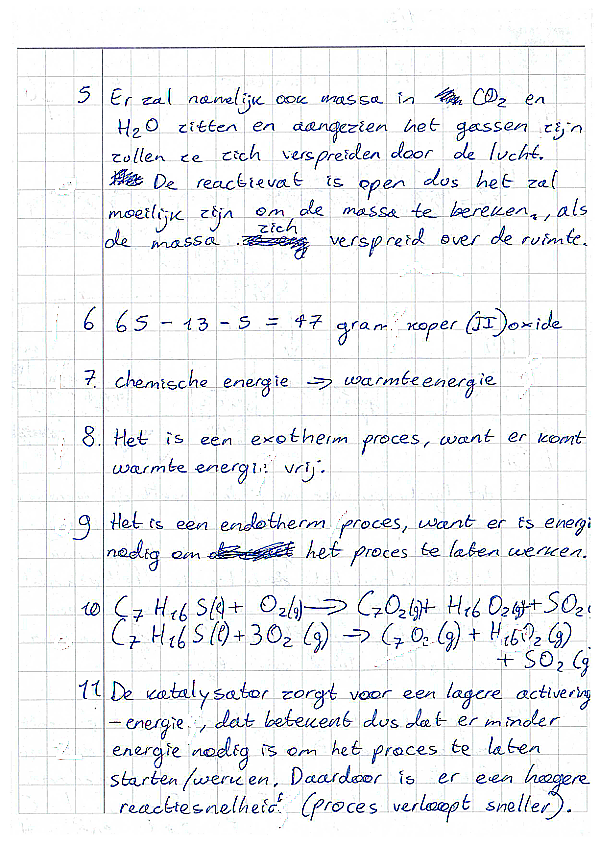 5 Er zal namelijk ook massa in CO2 en
H2O zitten en aangezien het gassen zijn
zullen ze zich verspreiden door de lucht.
De reactievat is open dus het zal
moeilijk zijn om de massa te bereken., als
de massa zich verspreid over de ruimte.
6 65 - 13 - 5 = 47 gram koper (II) oxide
7. chemische energie => warmteenergie
8. Het is een exotherm proces, want er komt
warmte energie vrij.
9 Het is een endotherm proces, want er is energi
nodig om het proces te laten werken.
10 C7 H16 S(l) + O2(g) → C7O2(g) + H16 O2(g) + SO2(
C7 H16 S(l) + 3O2 (g) → C7 O2 (g) + H16O2 (g)
+ SO2 (g
11 De katalysator zorgt voor een lagere activering
-energie, dat betekent dus dat er minder
energie nodig is om het proces te laten
starten/werken. Daardoor is er een hogere
reactiesnelheid (proces verloopt sneller).